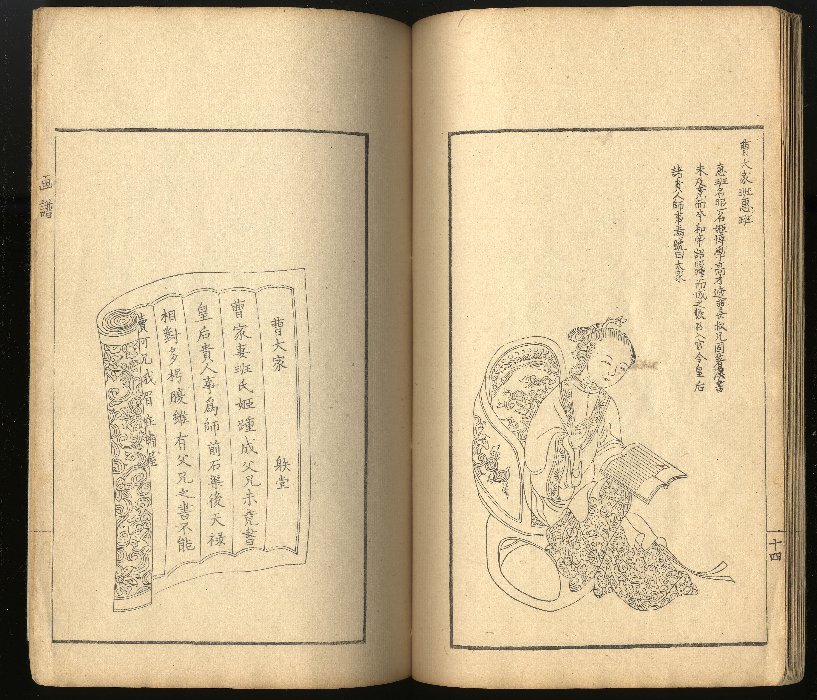 曹大家班惠班
惠班名昭一名姬博學高才適曹壽叔兄固著漢書
未及竟而卒和帝詔昭踵而成之數召入宮令皇后
諸貴人師事焉號曰大家
十四
曹大家
曹家妻班氏姬踵成父兄未竟書
皇后貴人事爲師前石渠後天祿
相對多愕腹雖有父兄之書不能
画譜